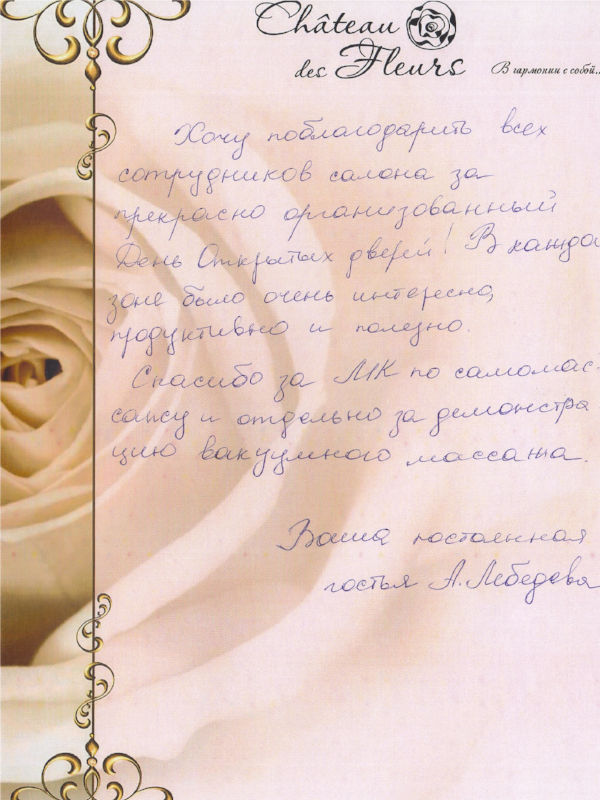 Château
des Fleurs
В гармонии с собой...
Хочу поблагодарить всех
сотрудников салона за
прекрасно организованный
День Открытых дверей! В каждо
зоне было очень интересно,
продуктивно и полезно.
Спасибо за МК по самомас-
сажу и отдельно за демонстра
цию вакуумного массажа.
Ваша постоянная
гостья А. Лебедева